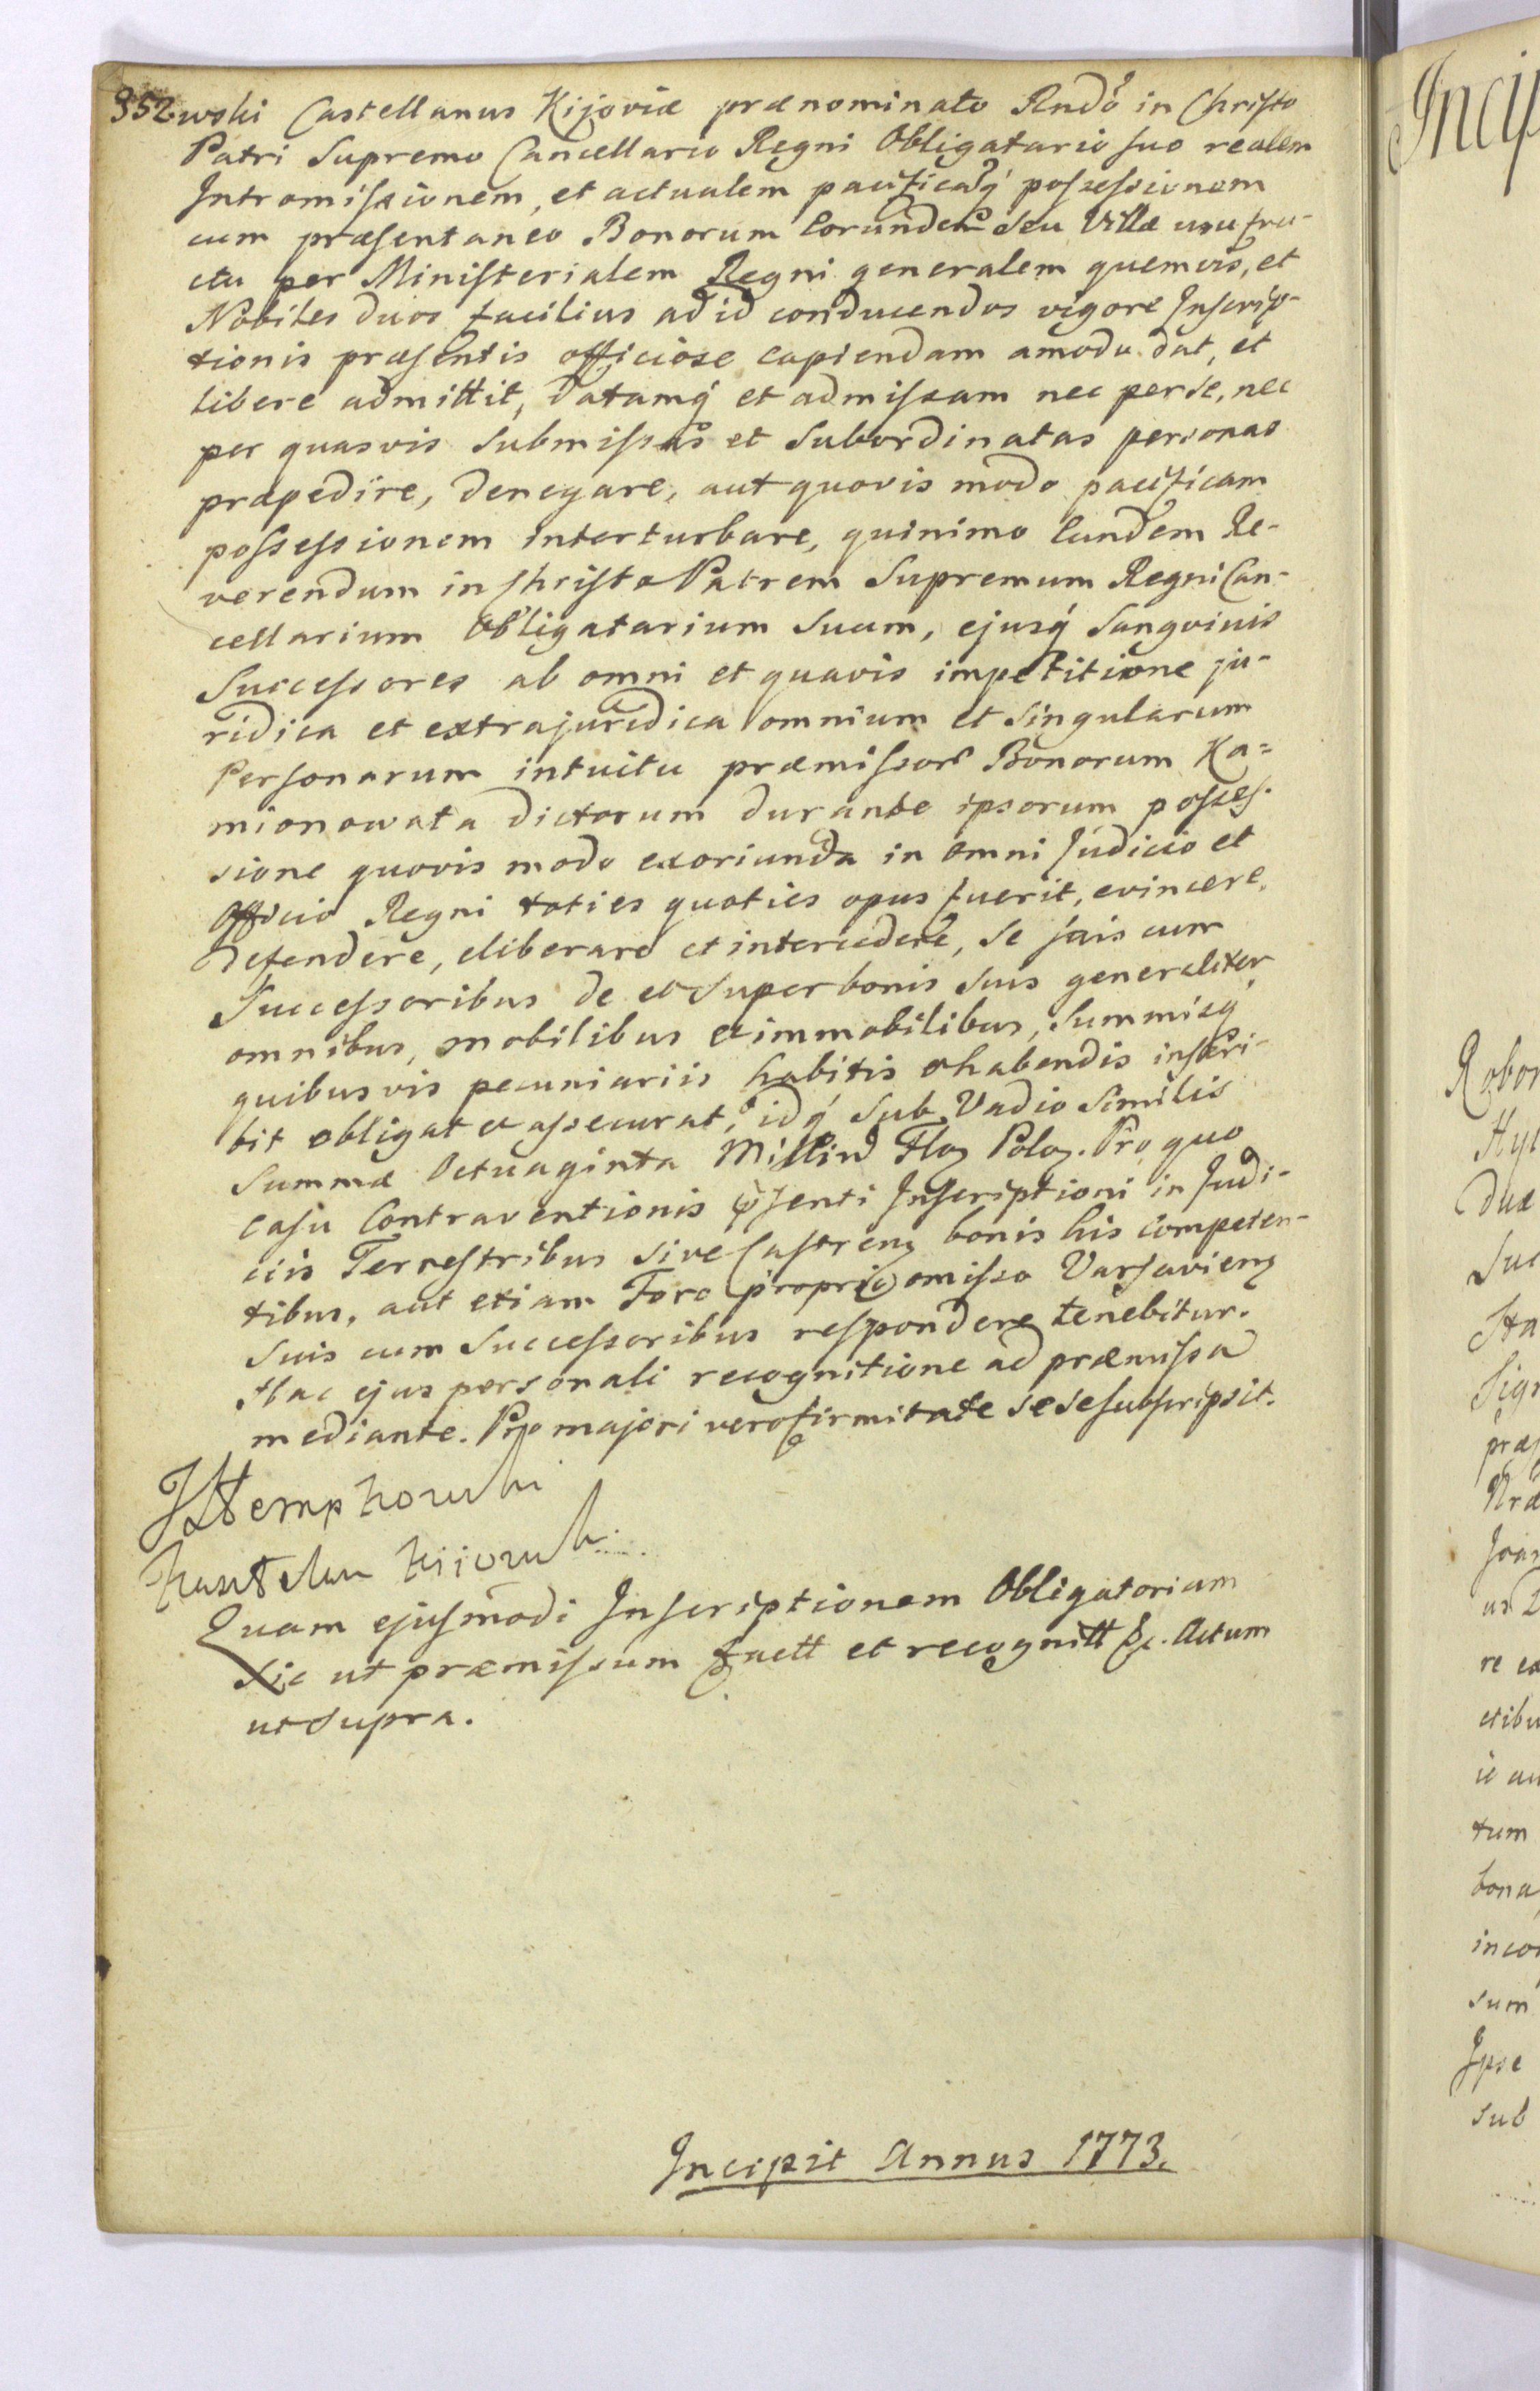 352 wski Castellanus Kijoviæ prænominato Rndo in Christo
Patri Supremo Cancellario Regni Obligatario suo realem
Intromissionem, et actualem pacificaq́ possessionem
cum præsentaneo Bonorum Eorundem Seu Villæ usufru-
ctu per Ministerialem Regni generalem quemvis, et
Nobiles duos facilius ad id conducendos vigore Inscrip-
tionis præsentis officiose capiendam amodo dat, et
libere admittit, Datamq́ et admissam nec per se, nec
per quasvis Submissas et Subordinatas personas
præpedire, denegare, aut quovis modo pacificam
possessionem interturbare, quinimo Eundem Re-
verendum in Christo Patrem Supremum Regni Can-
cellarium Obligatarium Suum, ejusq́ Sangvinis
Successores ab omni et quavis impetitione ju-
ridica et extrajuridica omnium et Singularum
Personarum intuitu præmissor Bonorum Ka=
mionowata dictorum durante ipsorum posses-
sione quovis modo exoriunda in omni Judicio et
Officio Regni toties quoties opus fuerit, evincere,
Defendere, eliberare et intercedere, Se suis cum
Successoribus de et Super bonis Suis generaliter
omnibus, mobilibus et immobilibus, Summisq́
quibusvis pecuniariis habitis et habendis inscri-
bit obligat et assecurat, idq́ Sub Vadio Similis
Summæ Octuaginta Millind Flor Polor. Pro quo
casu Contraventionis psenti Inscriptioni in Judi-
ciis Terrestribus Sive Castren bonis his competen-
tibus, aut etiam Foro proprio omisso Varsavien
Suis cum Successoribus respondere tenebitur.
Hac ejus personali recognitione ad præmissa
mediante. Pro majori vero firmitate Se se subscripsit.
JStempkowski
Kasztelan Kijowski
Quam ejusmodi Inscriptionem Obligatoriam
Sic ut præmissum factt et recognitt &c. Actum
ut Supra.
Incipit Annus 1773.
Incip
Robor
Suc
Sta
Sign
præs
Joan
re ex
ctibu
tum
bona
incon
sum
Ipse
sub